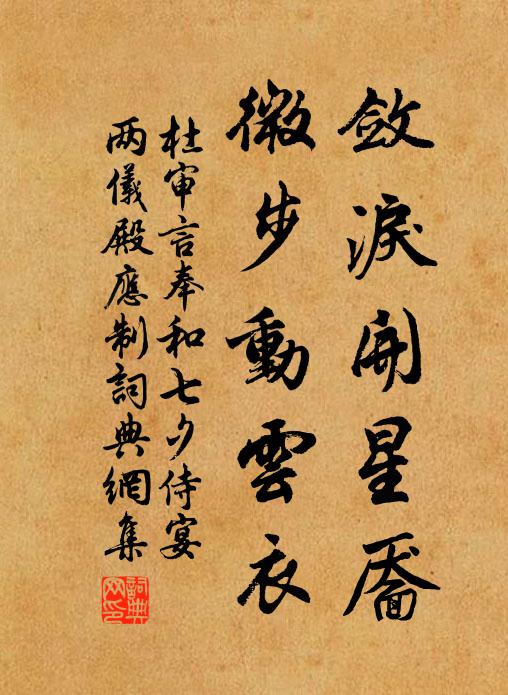 斂淚開星靨
微步動雲衣
杜审言奉和七夕侍宴
两儀殿應制詞典網集
詞典网印